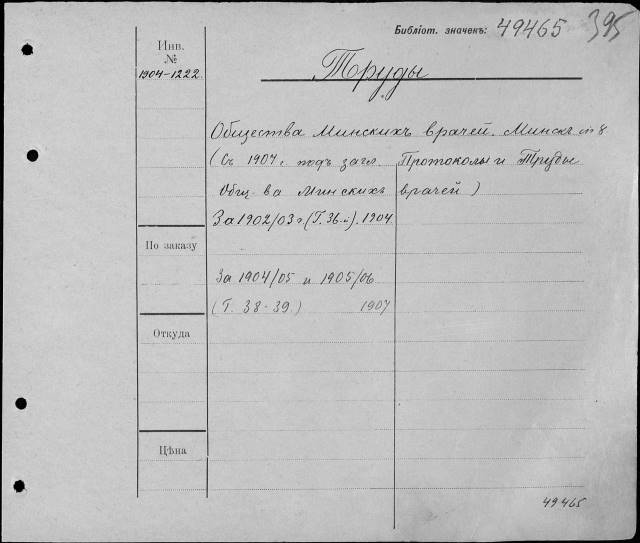 Библіот. значекъ: 49465 395
Инв.
№
1904-1222.
Труды
Общества Минскихъ врачей. Минскъ in 8
(Съ 1907 г. подъ загл. Протоколы и Труды
Общ-ва Минскихъ врачей)
За 1902/03 г. (Г. 36-й). 1904
По заказу
За 1904/05 и 1905/06
(Г. 38-39.) 1907
Откуда
Цѣна
49465